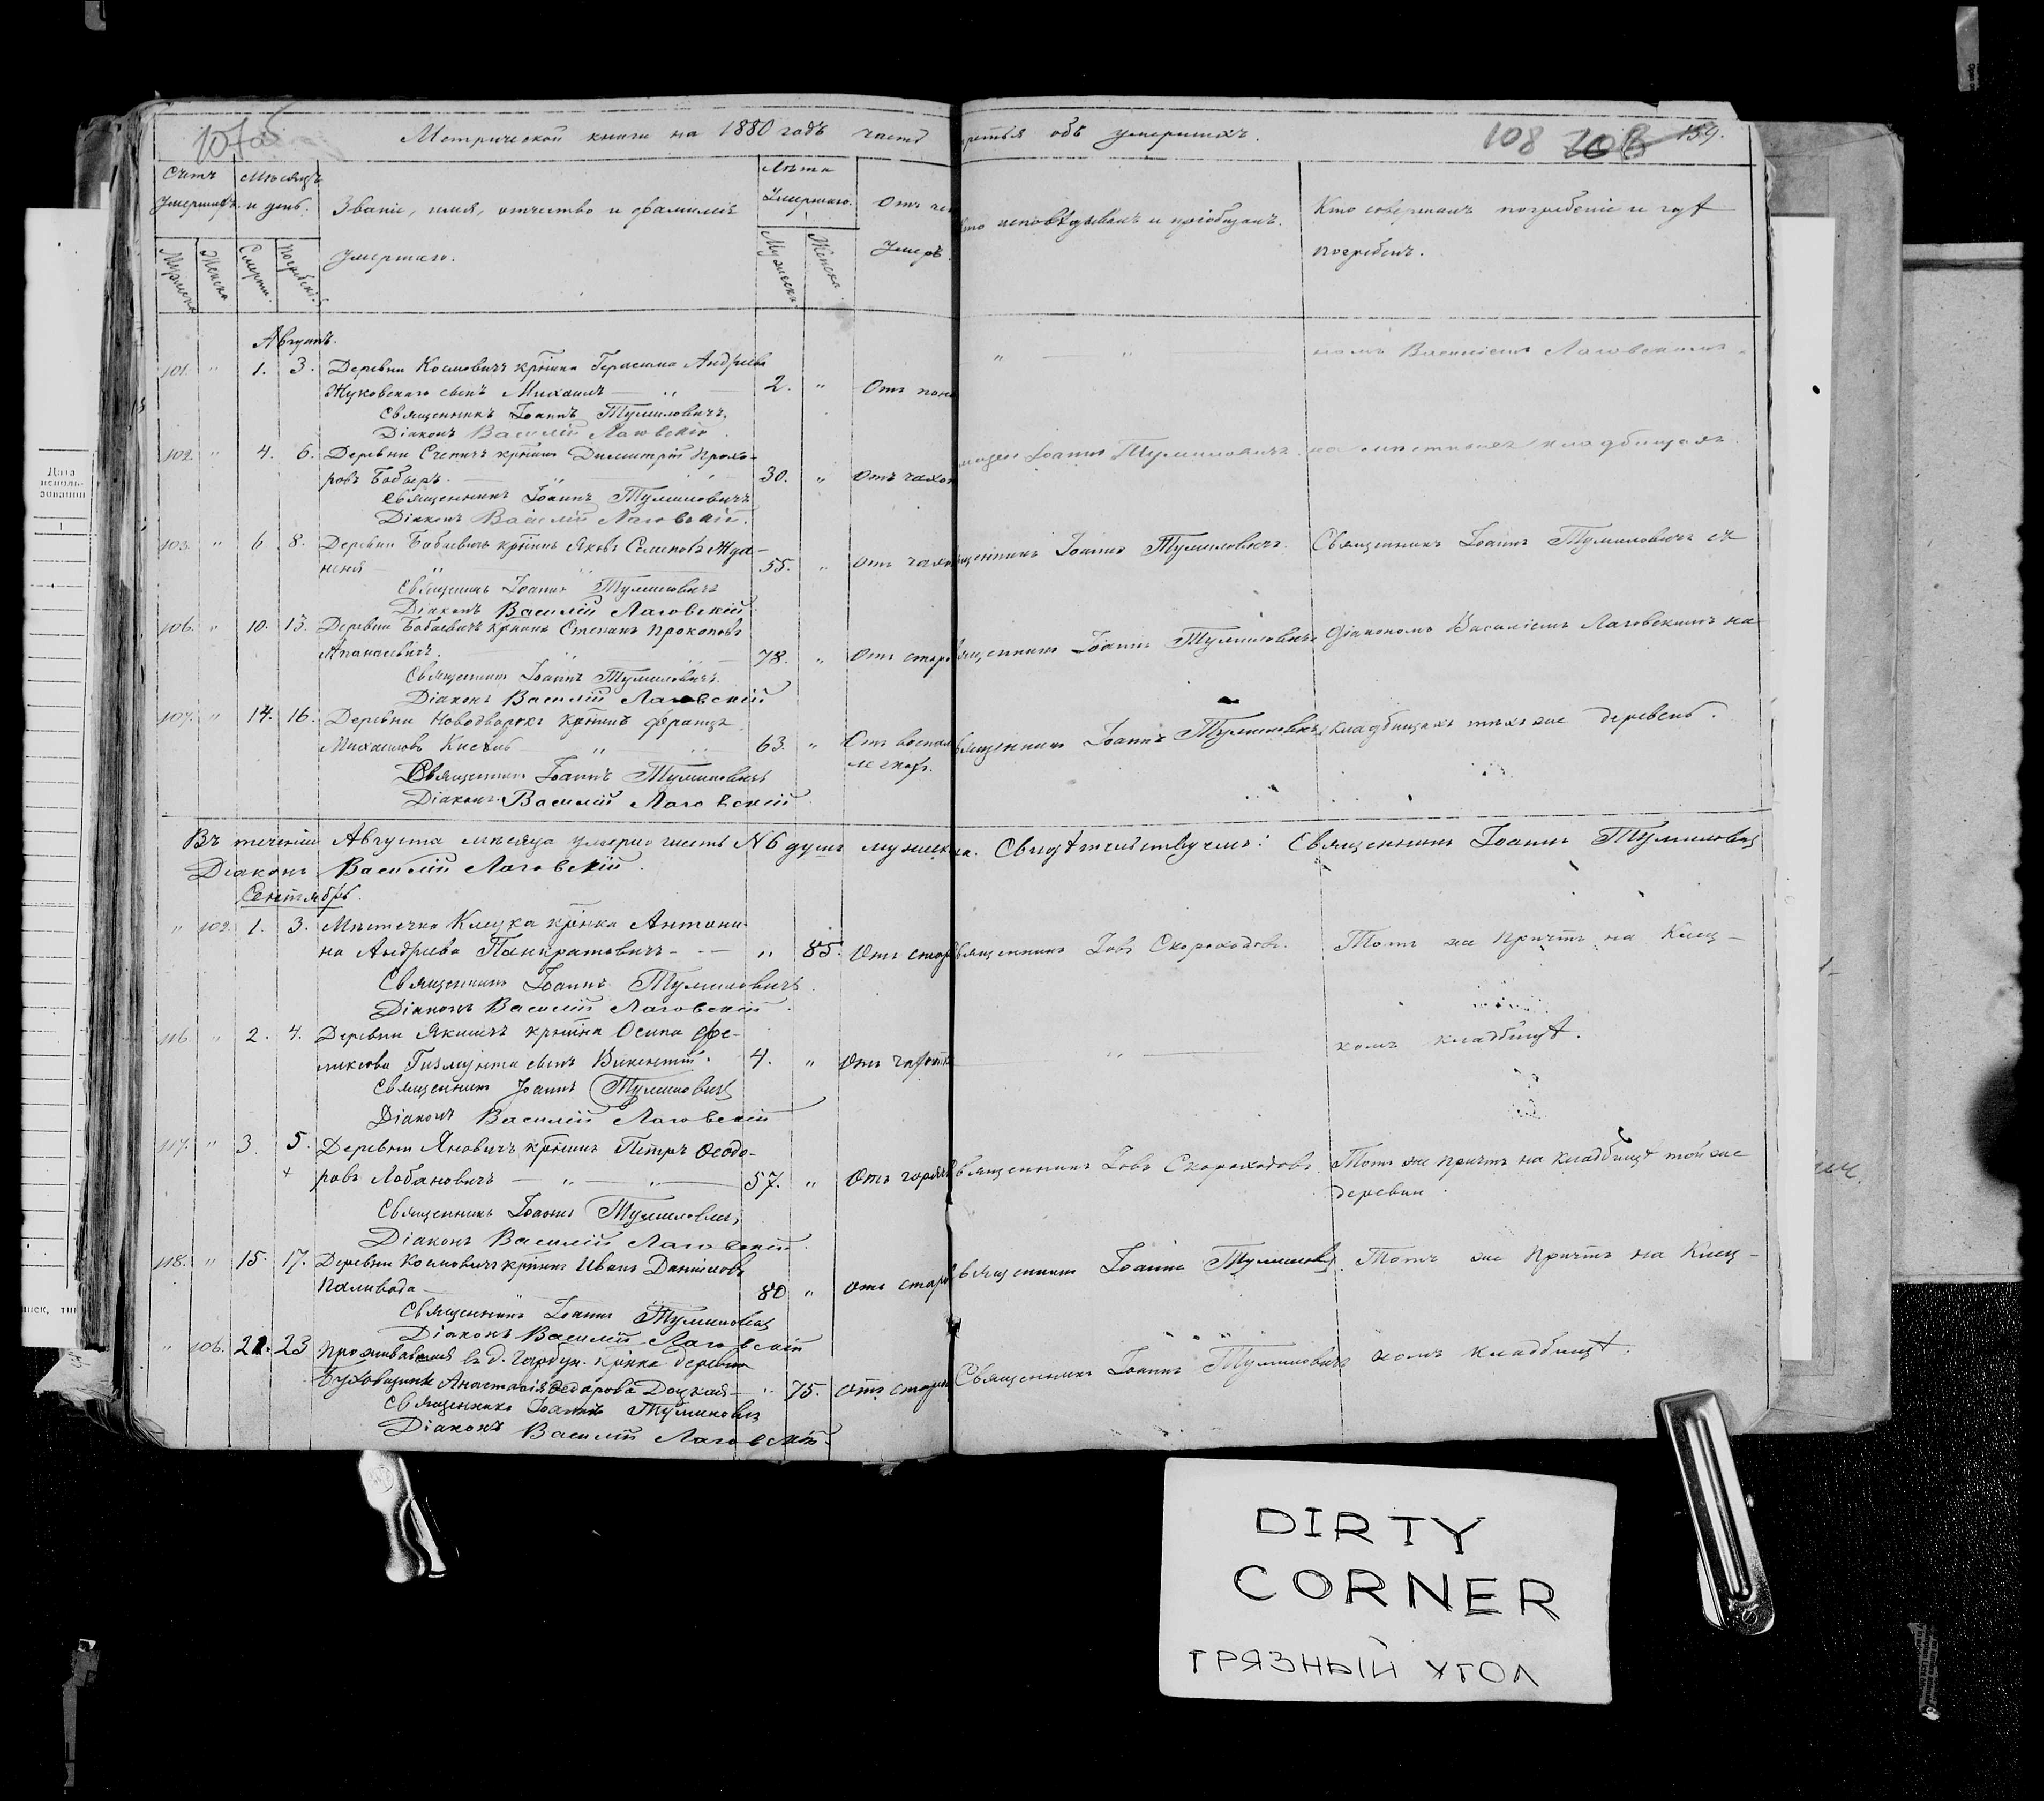 107об
Метрической книги на 1880 годъ часть третья объ умершихъ.
108
159.
Счетъ умершихъ.
Мѣсяцъ и день.
Званіе, имя, отчество и фамилія умершаго.
Лѣта умершаго.
Отъ чего умеръ.
Кто исповѣдывалъ и пріобщалъ.
Кто совершалъ погребеніе и гдѣ погребенъ.
Мужеска
Женска
Смерти.
Погребенія
Мужеска
Женска
Августъ.
101. " 1. 3. Деревни Космовичъ крѣшна Герасима Андреева
Жуковскаго сынъ Михаилъ 2. " Отъ поно
" " номъ Василіемъ Лаговскимъ
Священникъ Іоаннъ Тумиловичъ.
Діаконъ Василій Лаговскій.
102. " 4. 6. Деревни Счепичъ крѣшнъ Димитрій Прохо-
ровъ Бобыръ. 30. " Отъ чахот
Іоаннъ Тумиловичъ. на мѣстныхъ кладбищахъ.
Священникъ Іоаннъ Тумиловичъ
Діаконъ Василій Лаговскій.
103. " 6 8. Деревни Бабаевичъ крѣшнъ Яковъ Семеновъ Жда-
55. " Отъ чахо
щенникъ Іоаннъ Тумиловичъ. Священникъ Іоаннъ Тумиловичъ съ
Священникъ Іоаннъ Тумиловичъ
Діаконъ Василій Лаговскій.
106. " 10. 13. Деревни Бабаевичъ крѣшнъ Степанъ Прокоповъ
Апанасевичъ. 78. " Отъ старо
священникъ Іоаннъ Тумиловичъ діакономъ Василіемъ Лаговскимъ на
Священникъ Іоаннъ Тумиловичъ.
Діаконъ Василій Лаговскій
107. " 14. 16. Деревни Новодворокъ крѣшнъ Францъ
Михаиловъ Кисель " " 63. " Отъ воспал
легкаг.
священникъ Іоаннъ Тумиловичъ кладбищахъ тѣхъ же деревень.
Священникъ Іоаннъ Тумиловичъ
Діаконъ Василій Лаговскій
Въ теченіи Августа мѣсяца умерло шесть №6 душъ мужеска. Свидѣтельствуемъ: Священникъ Іоаннъ Тумиловичъ
Діаконъ Василій Лаговскій.
Сентябрь.
" 102. 1. 3. Мѣстечка Клецка крѣнка Антони-
на Андреева Панкратовичъ- " 85. Отъ стар
Священникъ Іовъ Скороходовъ. Тотъ же Причтъ на Клец-
Священникъ Іоаннъ Тумиловичъ.
Діаконъ Василій Лаговскій.
116. " 2. 4. Деревни Якшичъ крѣшна Осипа Фе-
ликсова сынъ Викентій. 4. " Отъ
" комъ кладбищѣ.
Священникъ Іоаннъ Тумиловичъ
Діаконъ Василій Лаговскій
117. " 3. 5. Деревни Яновичъ крѣшнъ Петръ Ѳеодо-
ровъ Лобановичъ " " 57. " Отъ горяч
Священникъ Іовъ Скороходовъ. Тотъ же причтъ на кладбищѣ той же
деревни.
Священникъ Іоаннъ Тумиловичъ,
Діаконъ Василій Лаговскій.
118. " 15. 17. Деревни Космовичъ крѣшнъ Иванъ Даниловъ
Паливода 80 " отъ старо
священникъ Іоаннъ Тумиловичъ. Тотъ же Причтъ на Клец-
Священникъ Іоаннъ Тумиловичъ
Діаконъ Василій Лаговскій
" 106. 21. 23 Проживавшая въ д. Горбун. крѣнка деревни
Анастасія Ѳедорова Доцкая " 75. Отъ старо
Священникъ Іоаннъ Тумиловичъ комъ кладбищѣ.
Священникъ Іоаннъ Тумиловичъ
Діаконъ Василій Лаговскій.
Дата
исполь-
зования
DIRTY
CORNER
ГРЯЗНЫЙ УГОЛ